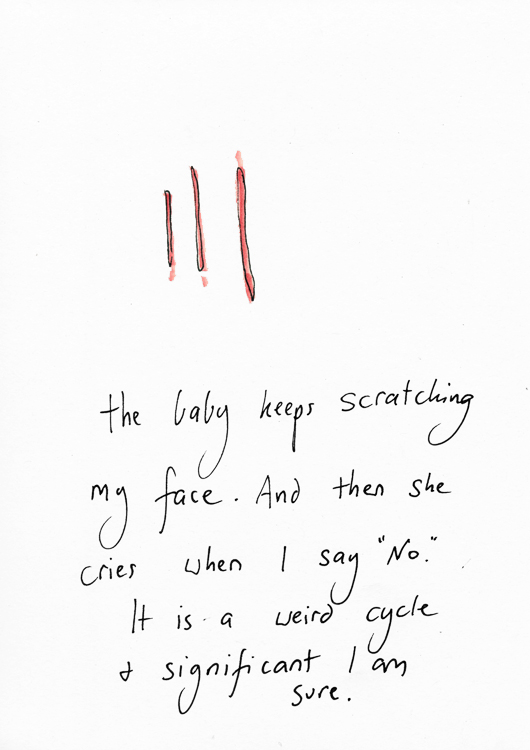 the baby keeps scratching
my face. And then she
cries when I say "No."
It is a weird cycle
& significant I am
sure.